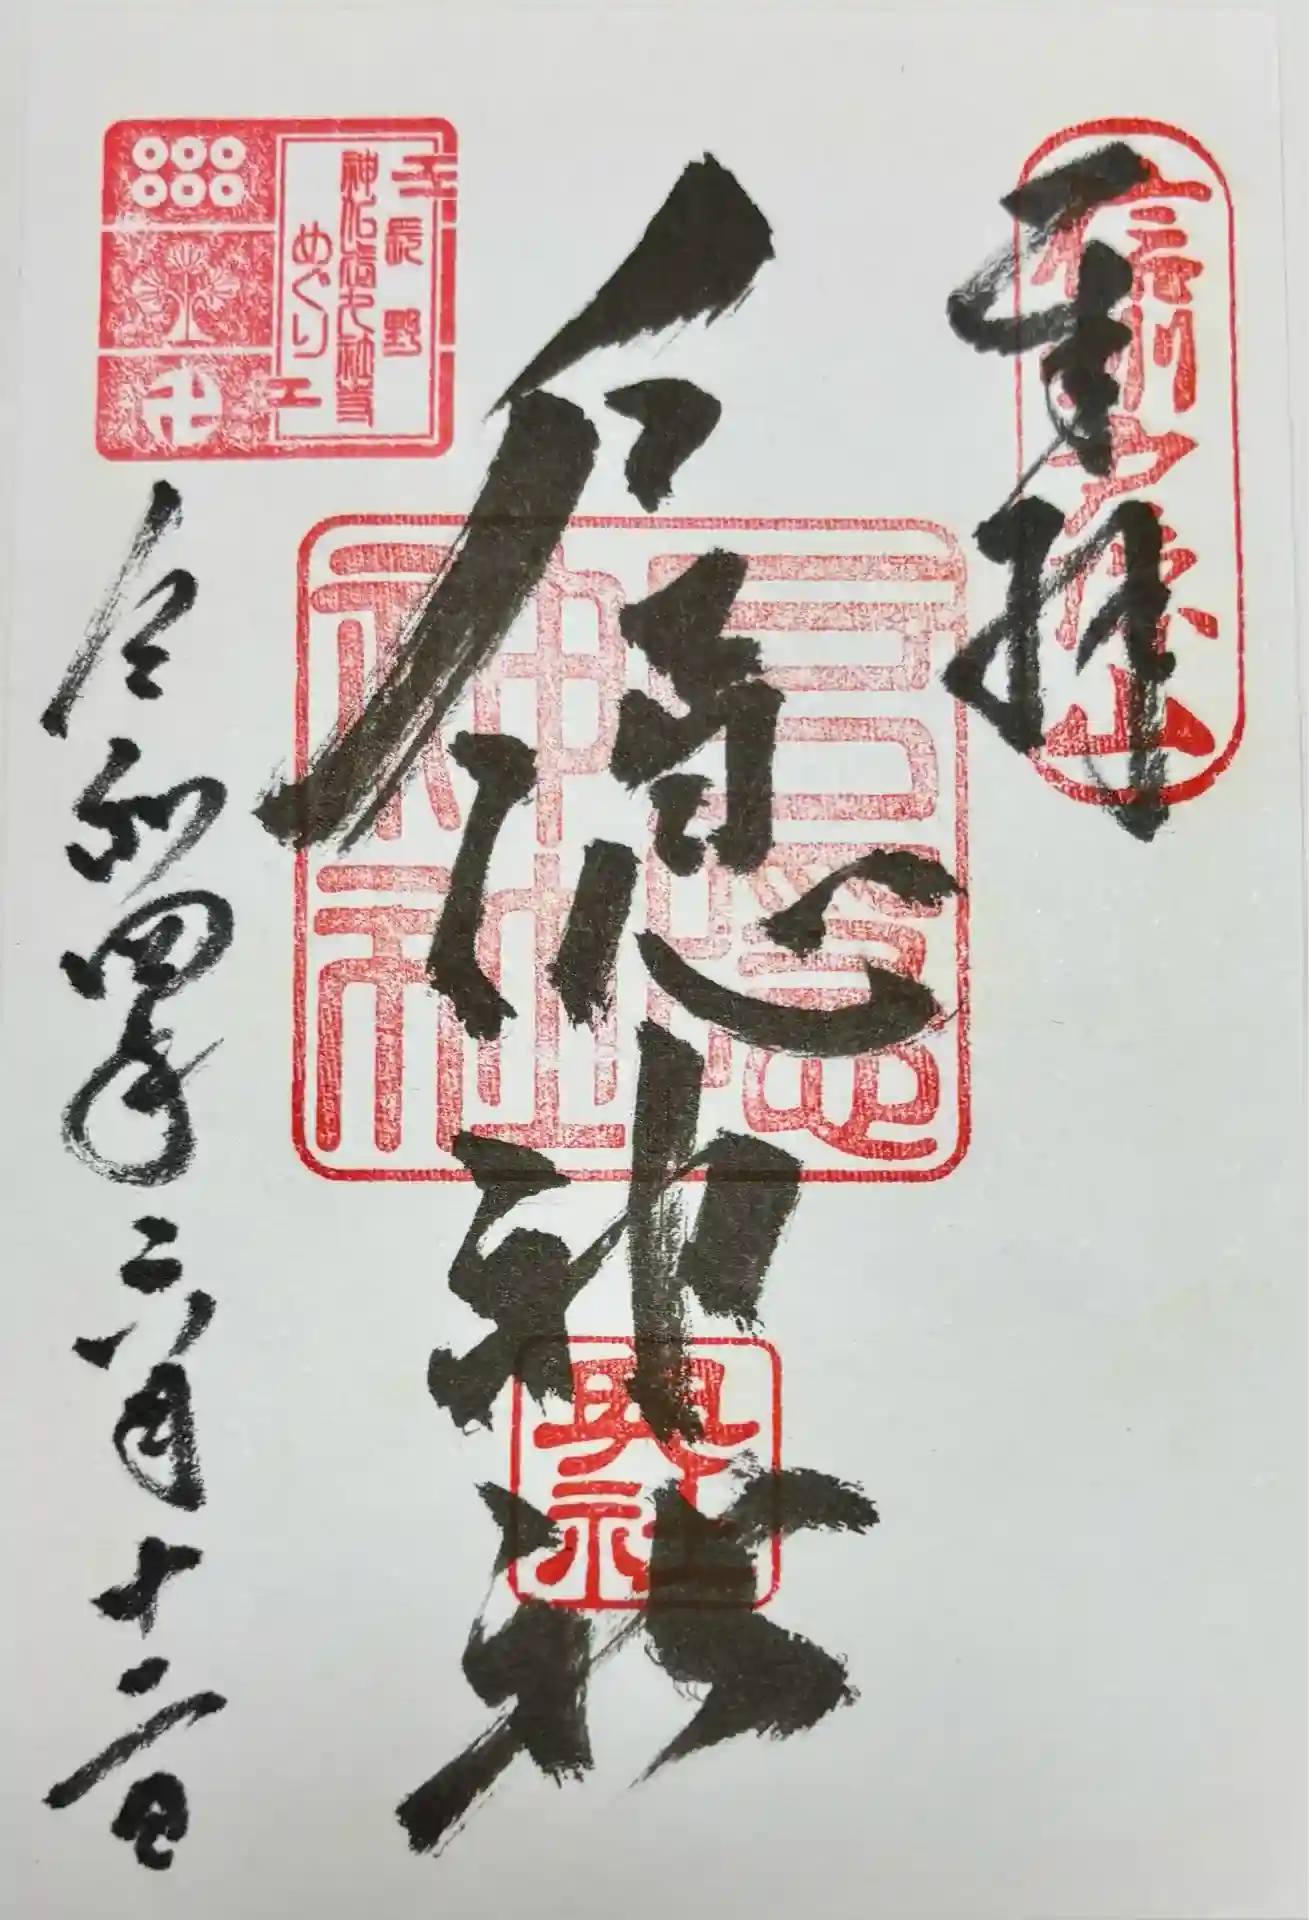 奉拝
信州戸隠山
戸隠神社
戸隠神社
奥社
長野
神仏信七社寺
めぐり
令和四年六月十二日